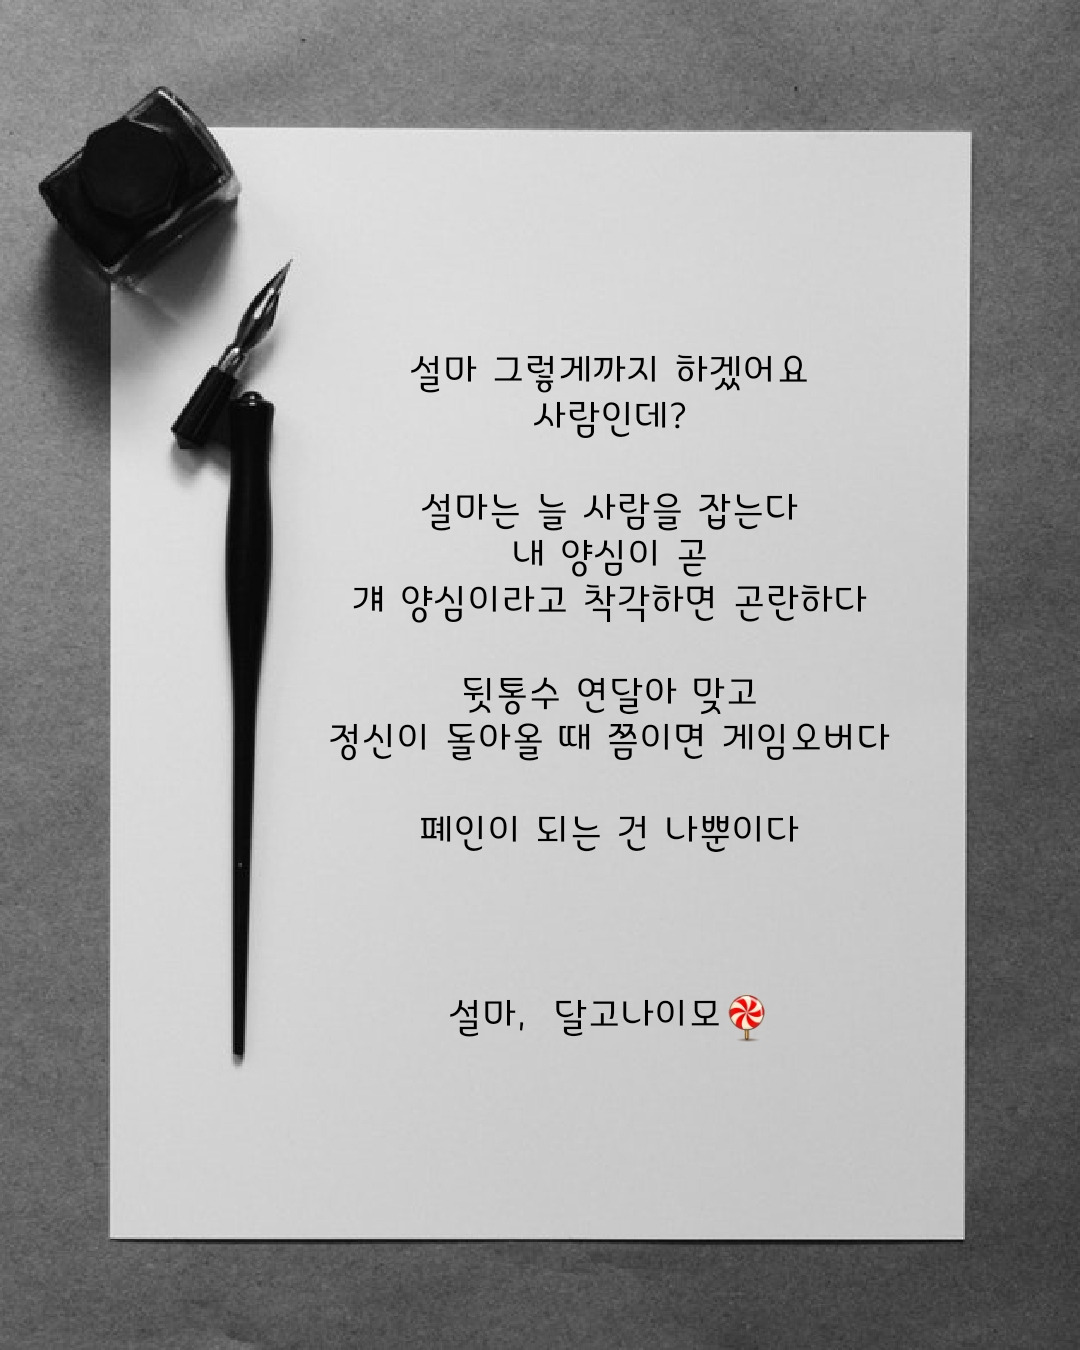 설마 그렇게까지 하겠어요
사람인데?
설마는 늘 사람을 잡는다
내 양심이 곧
걔 양심이라고 착각하면 곤란하다
뒷통수 연달아 맞고
정신이 돌아올 때 쯤이면 게임오버다
폐인이 되는 건 나뿐이다
설마, 달고나이모🍭